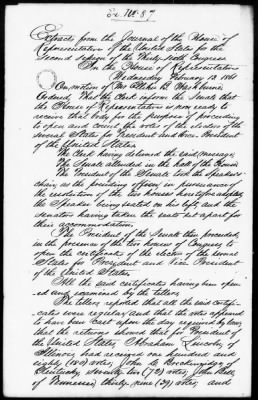 Ex. No. 87
Extracts from the Journal of the House of
Representatives of the United States for the
Second Session of the Thirty-Sixth Congress
In the House of Representatives
Wednesday February 13. 1861
On motion of Mr Elihu B. Washburne
Ordered, That the Clerk inform the Senate that
the House of Representatives is now ready to
receive that body for the purpose of proceeding
to open and count the votes of the electors of the
several States for President and Vice President
of the United States.
The Clerk having delivered the said message,
The Senate attended in the Hall of the House
The President of the Senate took the Speaker's
chair, as the presiding officer, in pursuance of
the resolution of the two houses heretofore adopted,
the Speaker being seated on his left, and the
senators having taken the seats set apart for
their accommodation.
The President of the Senate then proceeded,
in the presence of the two houses of Congress, to
open the certificates of the electors of the several
States for President and Vice President
of the United States.
All the said certificates having been open-
ed and examined by the tellers,
The tellers reported that all the said certifi-
cates were regular, and that the votes appeared
to have been cast upon the day required by law;
that the returns showed that for President of
the United States, Abraham Lincoln, of
Illinois, had received one hundred and
eighty (180) votes, John C. Breckinridge, of
Kentucky, seventy two (72) votes, John Bell,
of Tennessee, thirty nine (39) votes, and